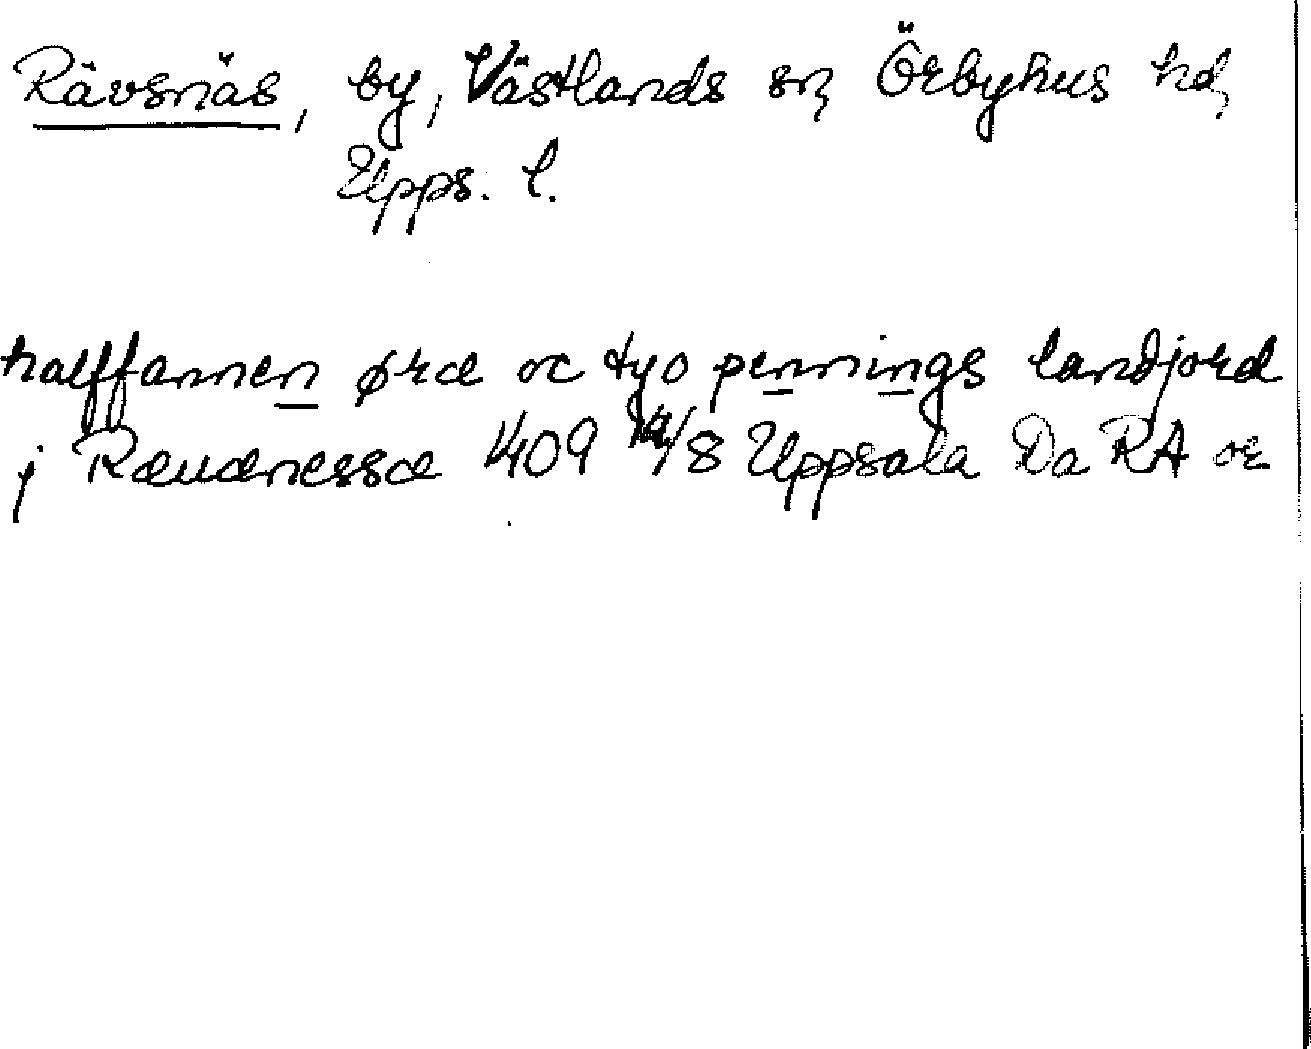 Rävsnäs, by, Västlands sn, Örbyhus hd,
Upps. l.
halffannen øræ oc tyo pennings landjord
j Ræuænessæ 1409 /8 Uppsala Da RA or